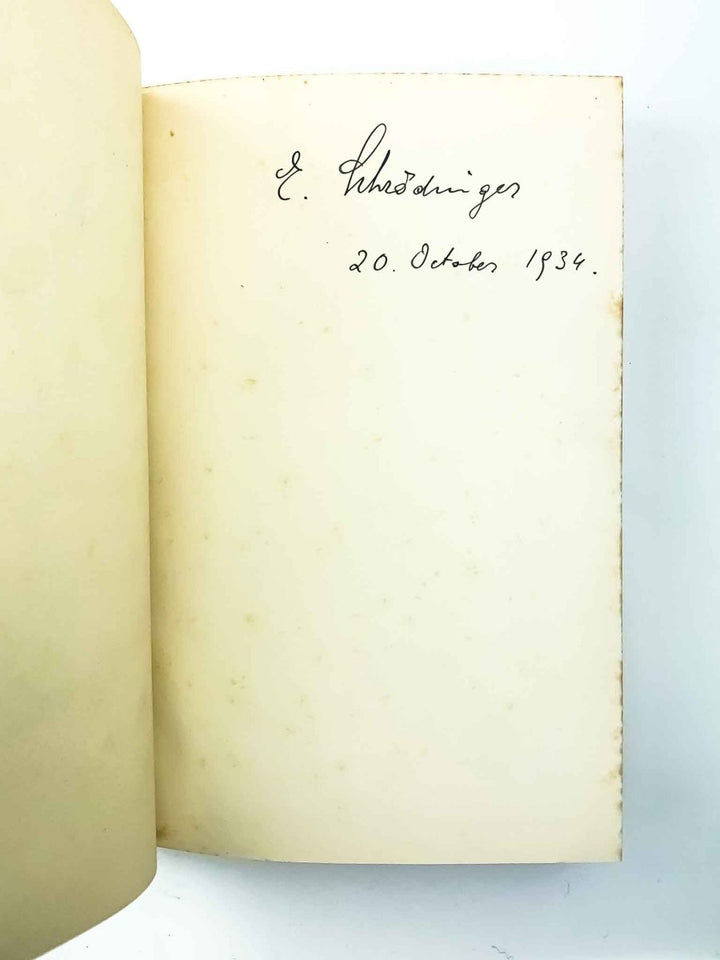 E. Schrödinger
20. October 1934.